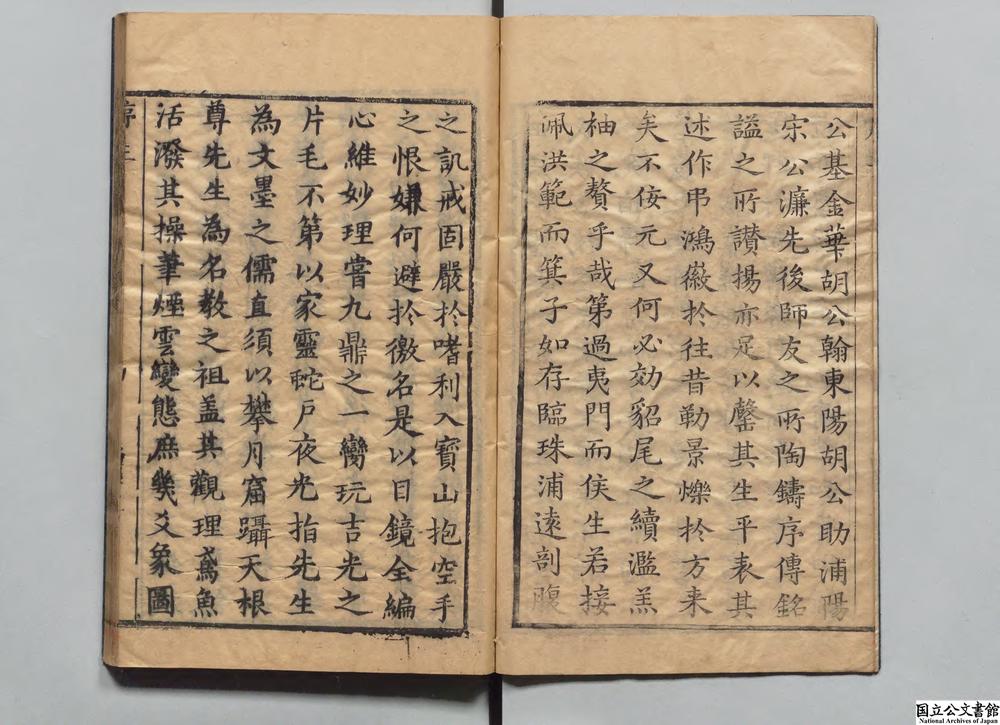 公基金華胡公翰東陽胡公助浦陽
宋公濂先後師友之所陶鑄序傳銘
謚之所讃揚亦足以罄其生平表其
述作弔鴻徽於往昔勒景爍於方来
矣不侫元又何必効貂尾之續濫羔
䄂之贅乎哉第過夷門而侯生若接
佩洪範而箕子如存臨珠浦遠剖腹
之訊戒固嚴於嗜利入寶山抱空手
之恨嫌何避於徼名是以目鏡全編
心維妙理嘗九鼎之一臠玩吉光之
片毛不第以家靈蛇戶夜光指先生
為文墨之儒直須以攀月窟躡天根
尊先生為名教之祖盖其觀理鳶魚
活潑其操筆煙雲變態庶幾爻象圖
国立公文書館
National Archives of Japan